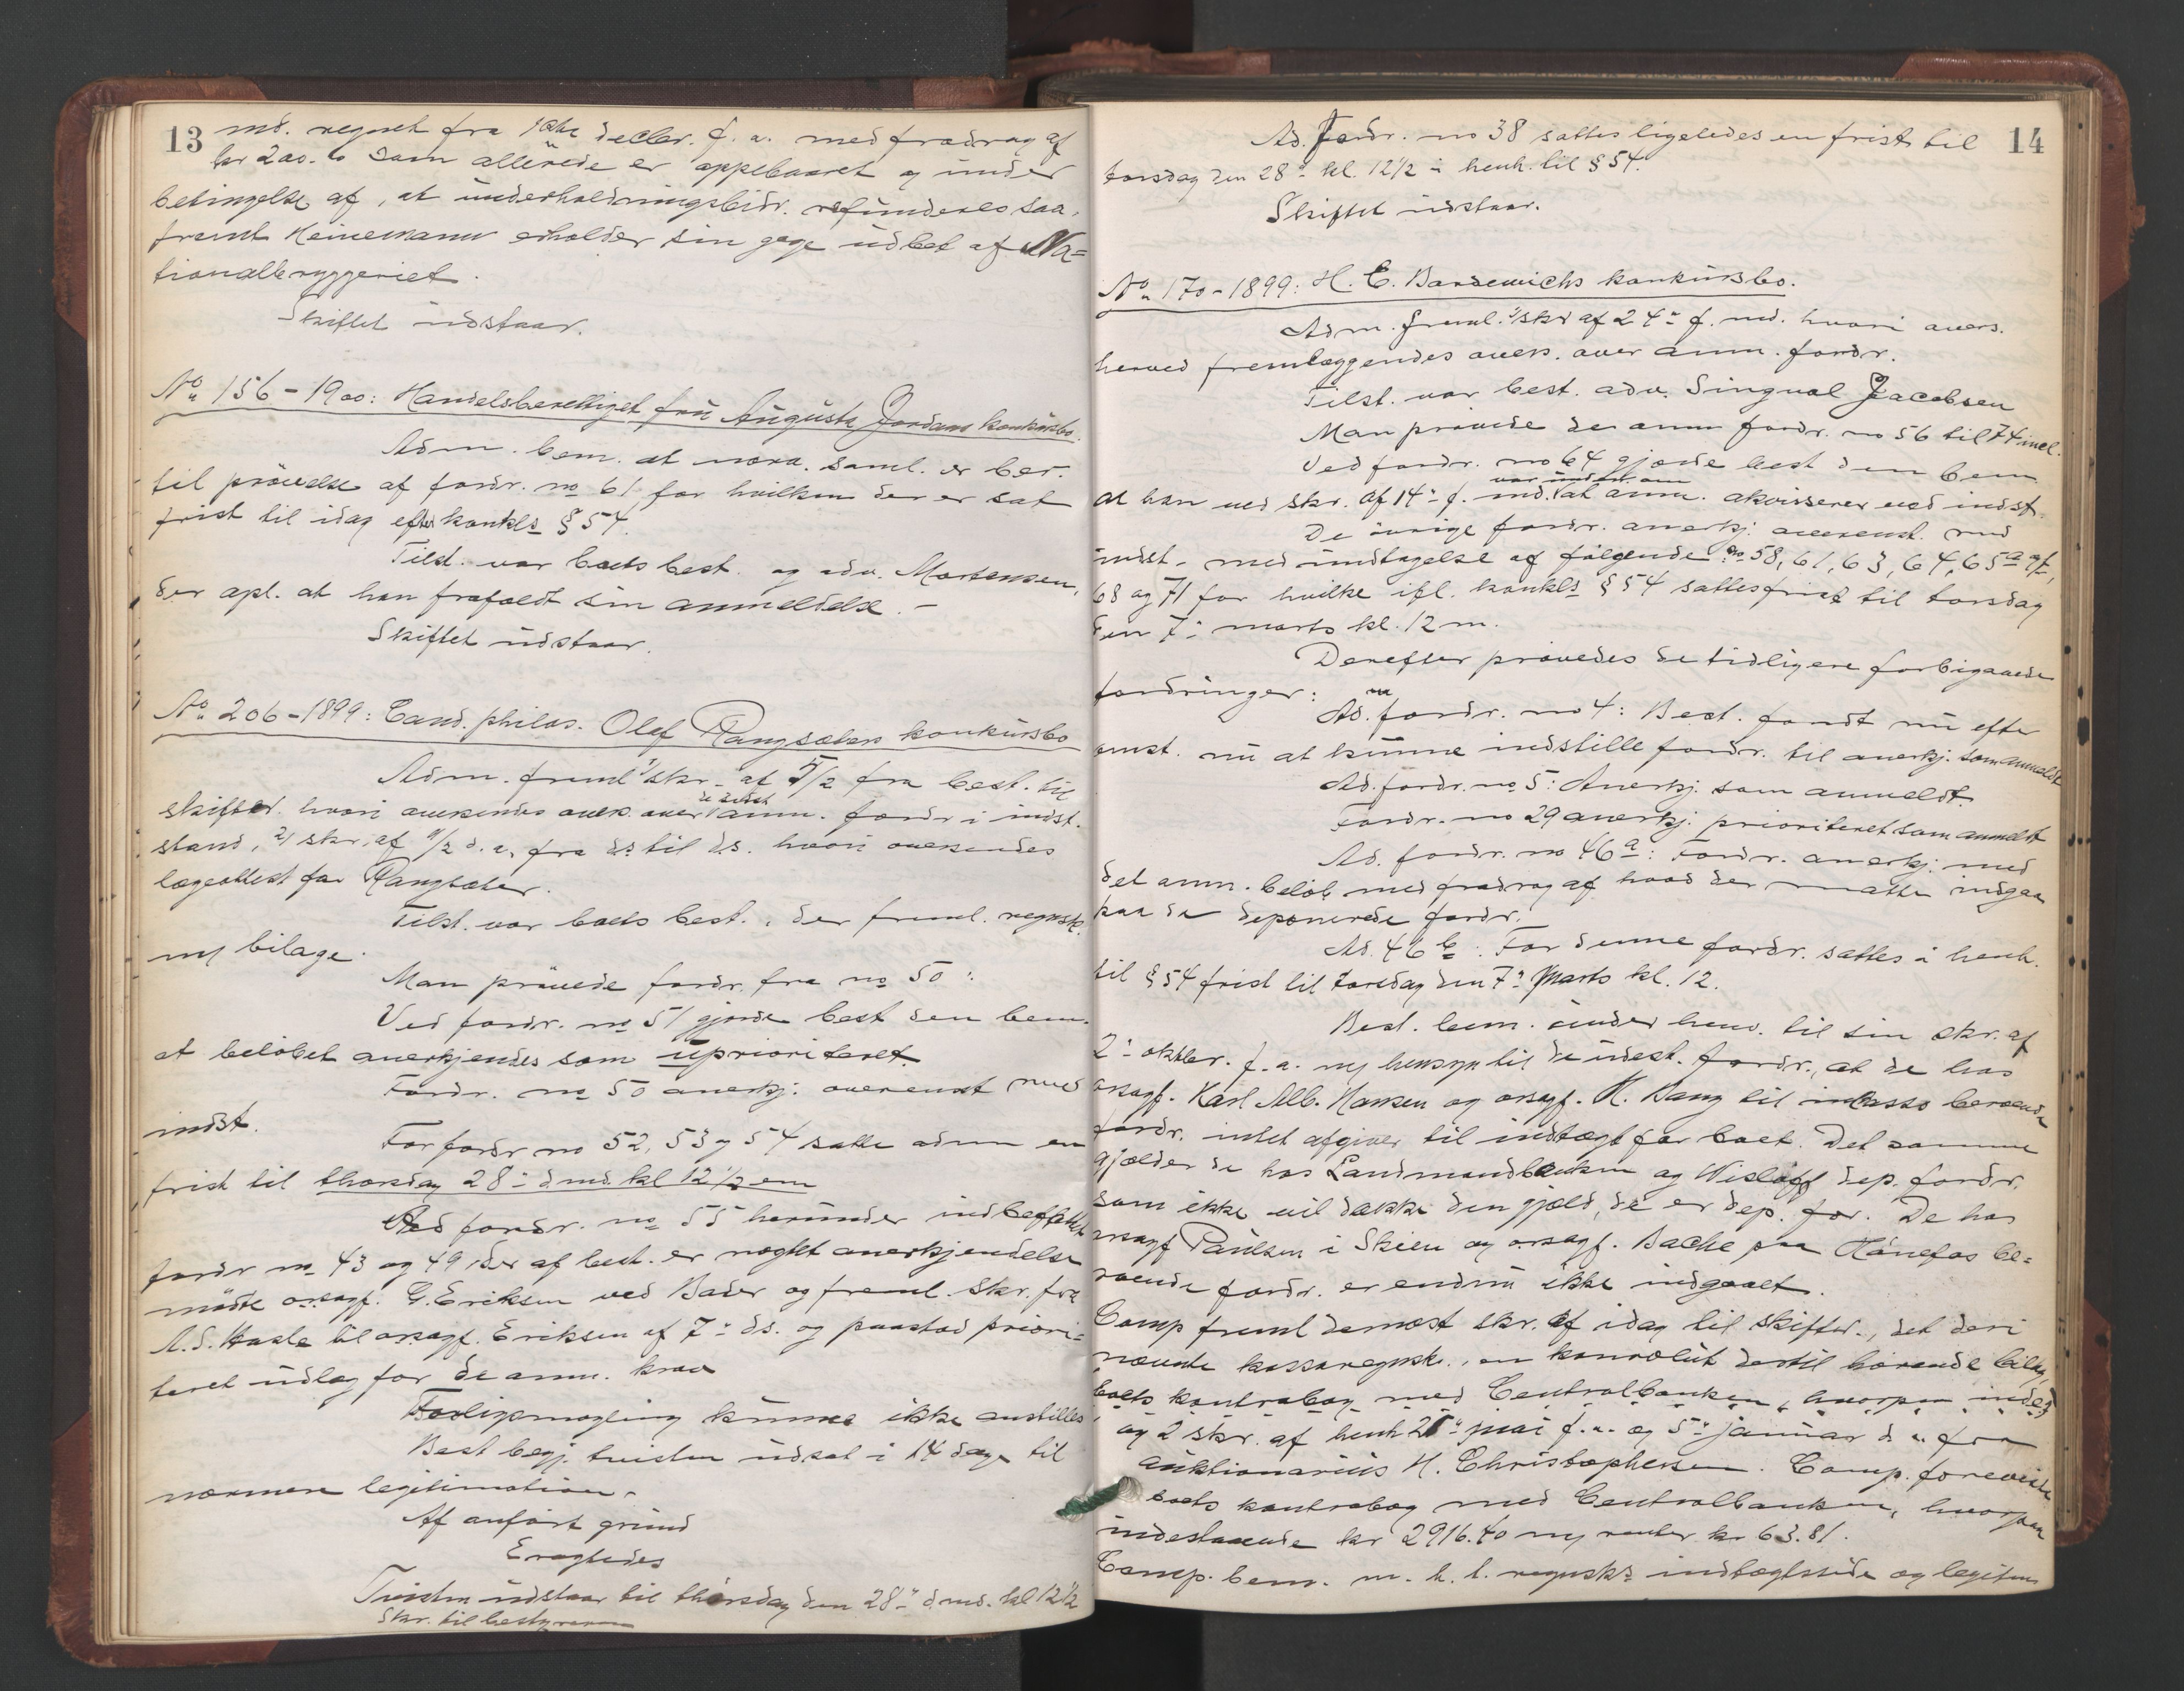 13
md. regnet fra 1ste decbr. f. a. med fradrag af
kr 200.00 som allerede er oppebaaret og under
betingelse af, at underholdningsbidr. refunderes saa-
fremt Heinemann erholder sin gage udbet af Na=
tionalbryggeriet.
Skiftet udstaar.
No 156 - 1900: Handelsberettiget fru Augusta Jordans konkursbo.
Adm. bem. at nærv. saml. er ber.
til prøvelse af fordr. no 61 for hvilken der er sat
frist til idag efter konkls § 54.
Tilst. var boets best. og adv. Mortensen,
der opl. at han frafaldt sin anmeldelse. -
Skiftet udstaar.
No 206 - 1899: Cand. philos. Olef Rangsæters konkursbo
Adm. freml 1/ skr. af 5/2 fra best. til
skifter. hvori oversendes overs. over de sidst anm. fordr i indst.
stand, 2/ skr. af 11/2 d. a. fra ds til ds. hvori oversendes
lægeattest for Rangsæter.
Tilst. var boets best., der freml. regnsk.
m/ bilage.
Man prøvede fordr. fra no 50:
Ved fordr. no 51 gjorde best den bem.
at beløbet anerkjendes som uprioriteret.
Fordr. no 50 anerkj: overenst med
indst.
For fordr no 52, 53 og 54 satte adm en
frist til thorsdag 28de d md. kl 12 1/2 em
Ved fordr. no 55 herunder indbefattet
fordr no 43 og 49 der af best. er nægtet anerkjendelse
mødte orsagf. G. Eriksen ved Bader og freml. skr. fra
A. S. til orsagf. Eriksen af 7de ds. og paastod priori=
teret udlæg for de anm. krav
Forligsmægling kunne ikke anstilles
Best begj. tvisten udsat i 14 dage til
nærmere legitimation.
Af anført grund
Eragtedes
Tvisten udstaar til thorsdag den 28de d md. kl 12 1/2
Skr. til bestyreren
14
Ad. Fordr. no 38 sattes ligeledes en frist til
torsdag den 28de kl. 12 1/2 i henh. til § 54.
Skiftet udstaar.
No 170 - 1899: H. C. Bardewichs konkursbo.
Adm. freml. 1/ skr af 24de f. md. hvori overs.
herved fremlæggendes overs. over anm. fordr.
Tilst. var best. adv. Singval Jacobsen
Man prøvede de anm fordr. no 56 til 74 incl.
Ved fordr. no 64 gjorde best den bem
at han ved skr. af 14de f. md. at anm. akviserer ved indst.
De øvrige fordr. anerkj: overenst. med
indst. med undtagelse af følgende no 58, 61, 63, 64, 65a
68 og 71 for hvilke ifl. konkls § 54 sattes frist til torsdag
den 7de marts kl. 12 m.
Derefter prøvedes de tidligere forbigaaede
fordringer:
Ad. fordr. no 4: Best. fandt nu efter
omst. nu at kunne indstille fordr. til anerkj: som anmeldt
Ad. fordr. no 5: Anerkj. som anmeldt.
Fordr. no 29 anerkj: prioriteret som anmeldt
Ad. fordr. no 46a: Fordr. anerkj: med
det anm. beløb med fradrag af hvad der maatte indgaa
paa de deponerede fordr.
Ad. 46b: For denne fordr. sattes i henh.
til § 54 frist til torsdag den 7de Marts kl. 12.
Best. bem. under henv. til sin skr. af
2de oktbr. f. a. m/ hensyn til de udest. fordr., at de hos
orsagf. Karl Alb. Hansen og orsagf. K. Bang til inkasso beroende
fordr. intet afgiver til indtægt for boet. Det samme
gjælder de hos Landmandsbanken og Wisløff dep. fordr.
som ikke vil dække den gjæld, de er dep. for. De hos
orsagf Paulsen i Skien og orsagf. Bache paa Hønefos be=
roende fordr. er endnu ikke indgaaet.
Comp freml dernæst skr. af idag til skifter., det deri
nævnte kassaregnsk., en konvolut dertil hørende bilag,
boets kontrabog med Centralbanken, hvorpaa indest
og 2 skr. af henh 21de mai f. a. og 5de januar d. a. fra
auktionarius H. Christophersen. Comp. foreviste
boets kontrabog med Centralbanken, hvorpaa
indestaaende kr 2916.40 m/ renter kr 63.81.
Comp. bem. m. h. t. regnskts indtægtsside og legitim